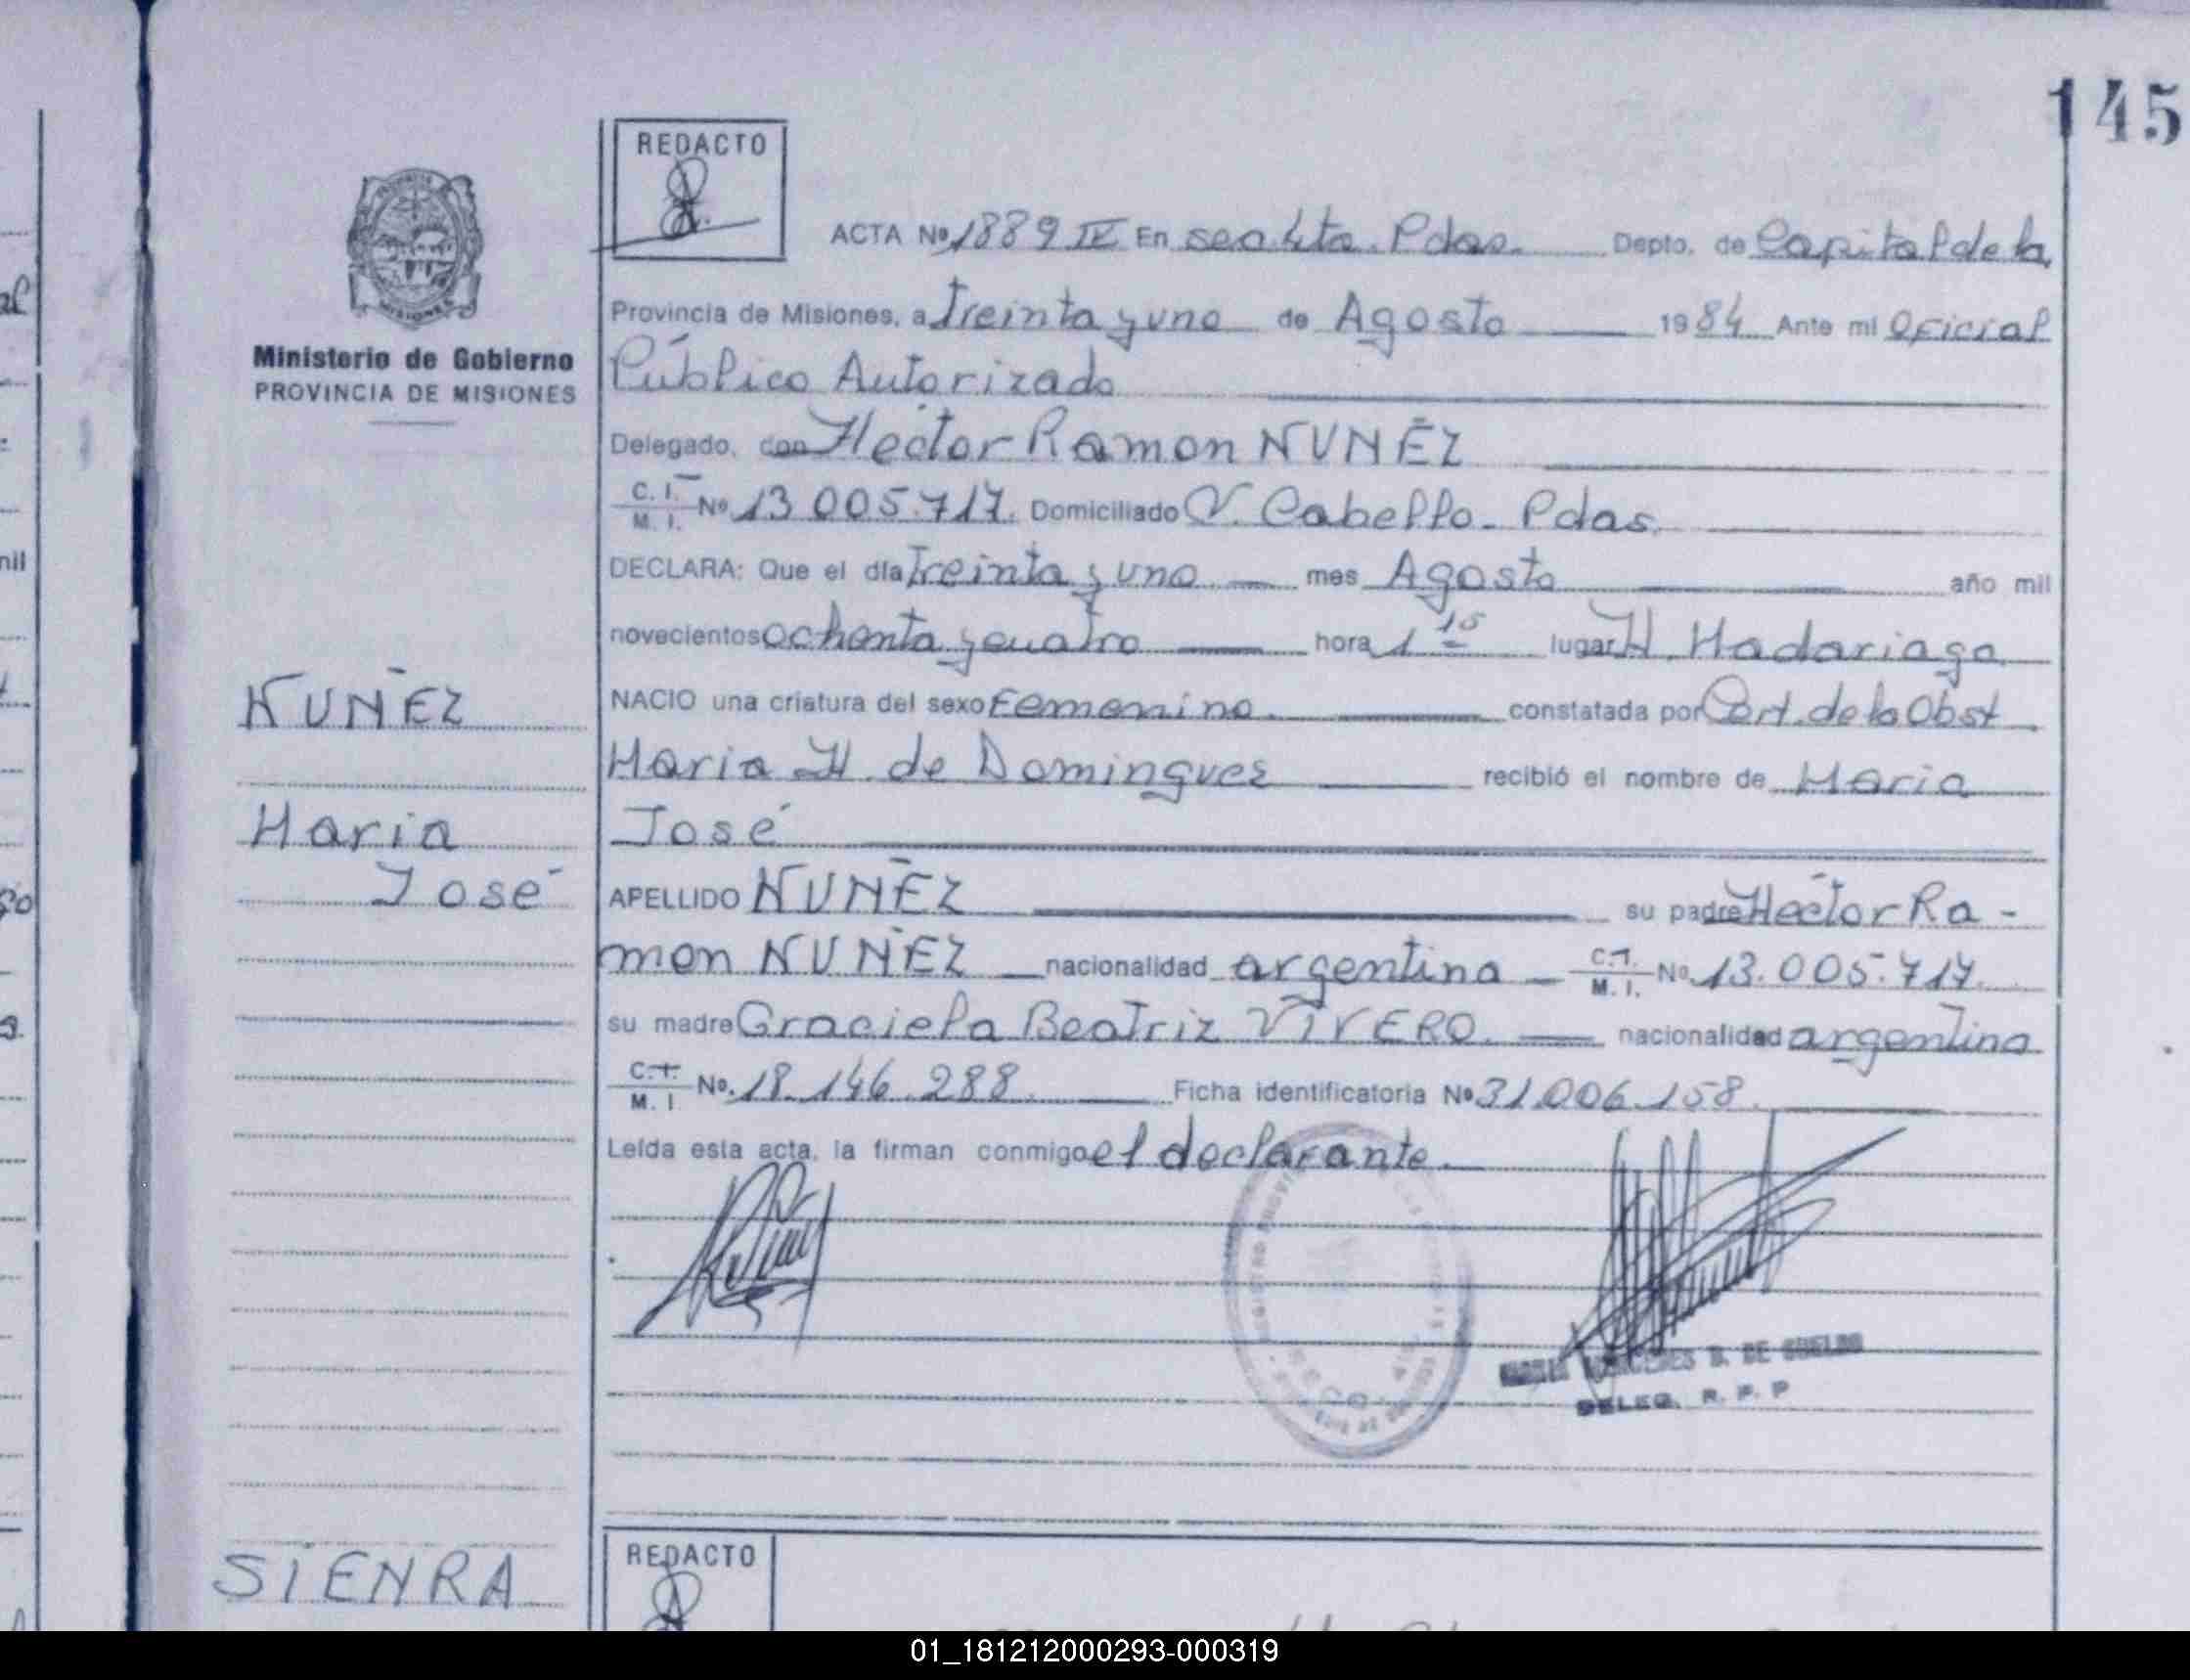 145
REDACTO
ACTA Nº 1889 IV En secc. 4ta. Pdas. Depto. de Capital de la
Provincia de Misiones, a Treinta y uno de Agosto 1984 Ante mi Oficial
Ministerio de Gobierno
PROVINCIA DE MISIONES
Público Autorizado
Delegado, don Hector Ramon NUÑEZ
C. I. M. I. Nº 13.005.717. Domiciliado V. Cabello - Pdas.
DECLARA: Que el día Treinta y uno mes Agosto año mil
novecientos ochenta y cuatro hora 1 15 lugar H. Madariaga
NUÑEZ
NACIO una criatura del sexo Femenino. constatada por Cert. de la Obst
Maria H. de Dominguez recibió el nombre de Maria
Maria
José
José
APELLIDO NUÑEZ su padre Hector Ra-
mon NUÑEZ nacionalidad argentina C.I. M. I. Nº 13.005.717.
su madre Graciela Beatriz VIVERO. nacionalidad argentina
C.I. M. I Nº. 18.146.288. Ficha identificatoria Nº 31.006.158.
Leída esta acta, la firman conmigo el declarante.
DELEG. R. P. P
REDACTO
SIENRA
01_181212000293-000319